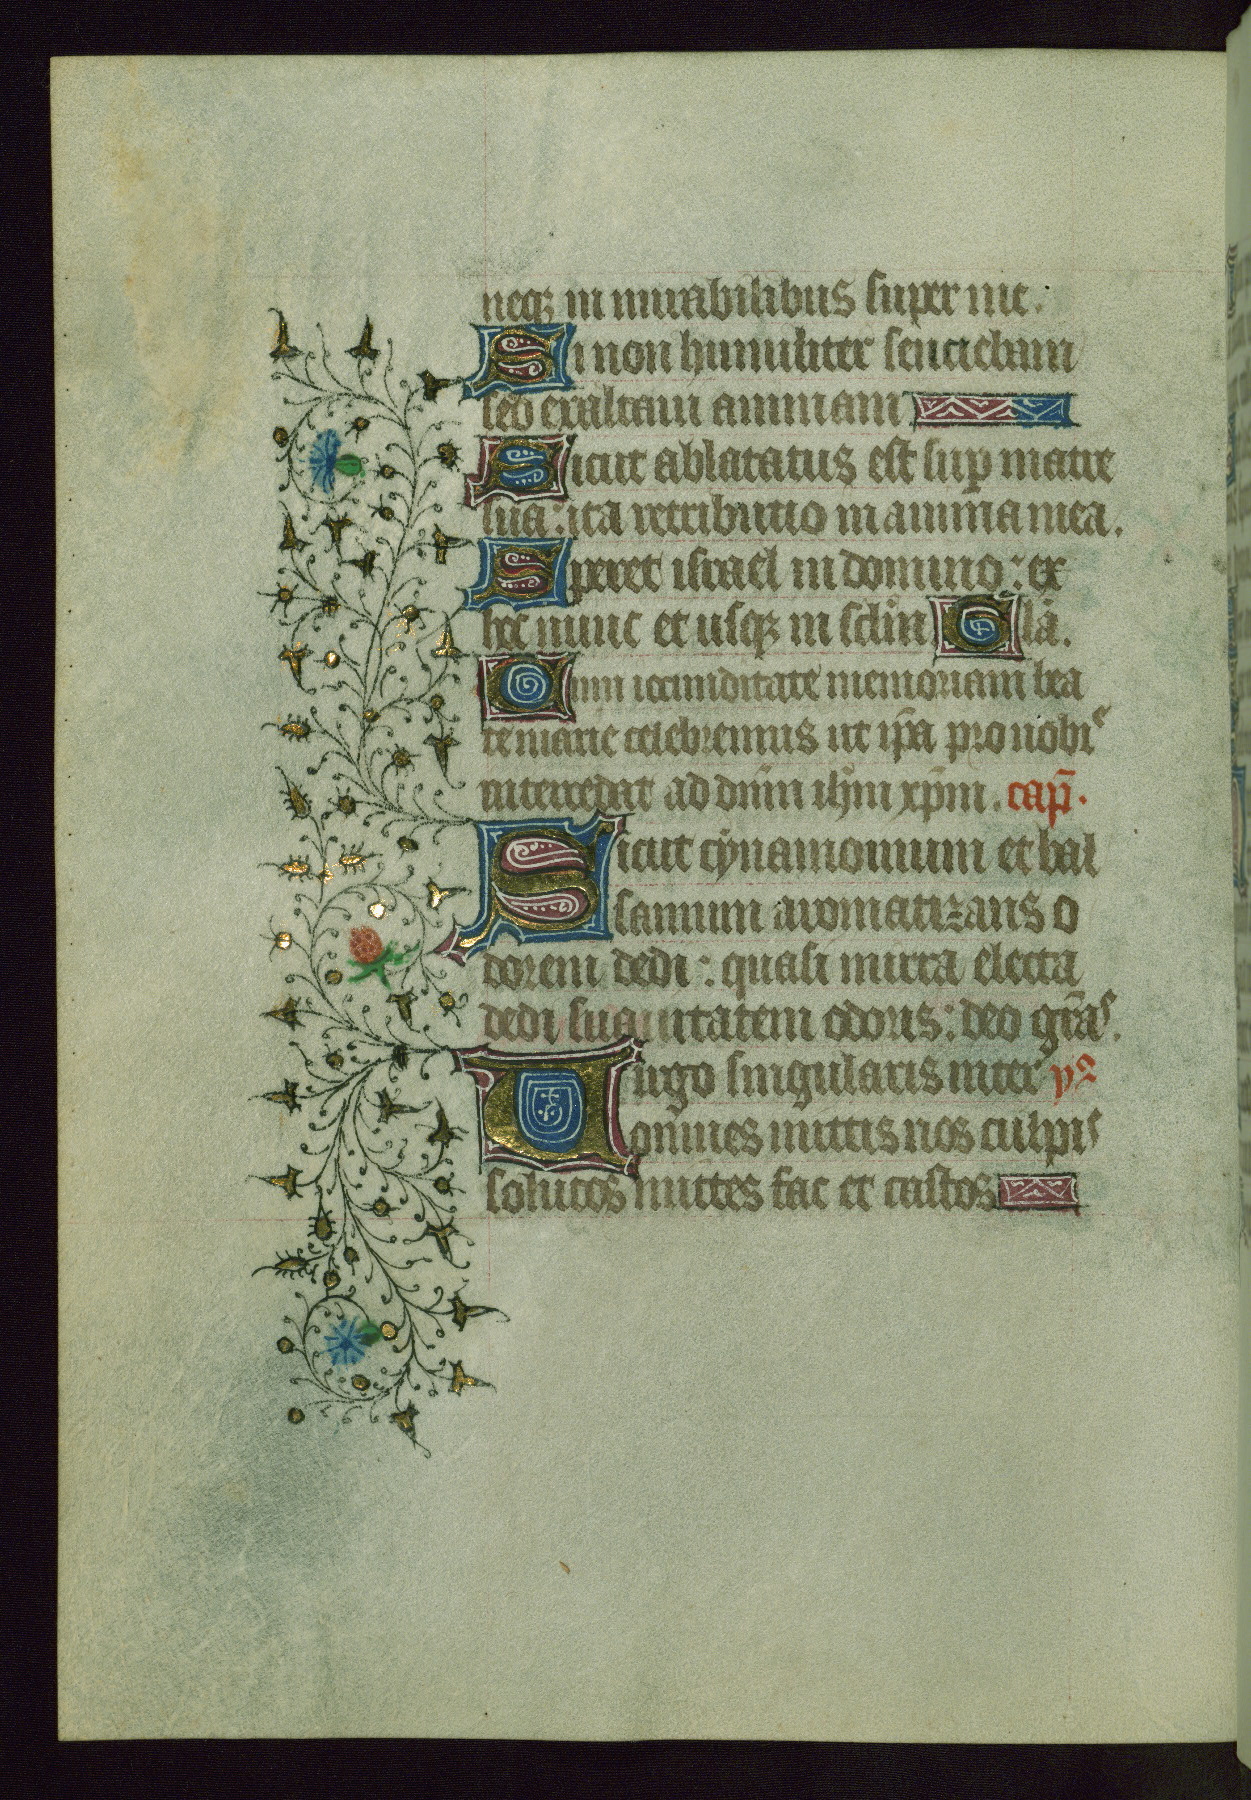 neqꝫ in mirabilibus super me.
Si non humiliter senciebam
sed exaltaui animam
Sicut ablatatus est suꝑ matre
sua: ita retributio in anima mea.
Speret israel in domino: ex
hec nunc et usqꝫ in sclm̄ Glā.
Cum iocunditate memoriam bea
te marie celebremus ut ip̄a pro nobis
intercedat ad dn̄m ihm̄ xp̄m. cap̄.
Sicut cynamomum et bal
samum aromatizans o
dorem dedi: quasi mirra electa
dedi suauitatem odoris: deo gr̄as.
Uirgo singularis inter ys
omnes mittis nos culpis
solutos mittes fac et castos